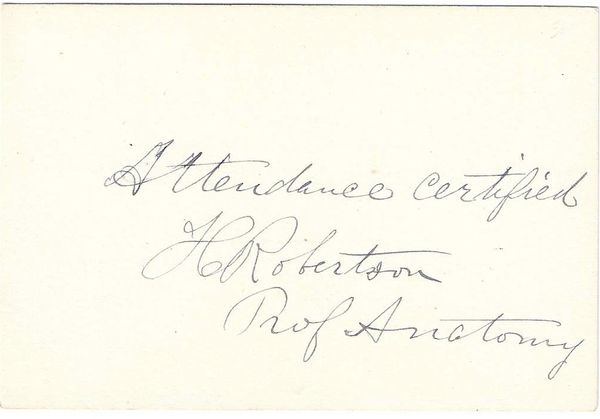 Attendance certified
H Robertson
Prof Anatomy